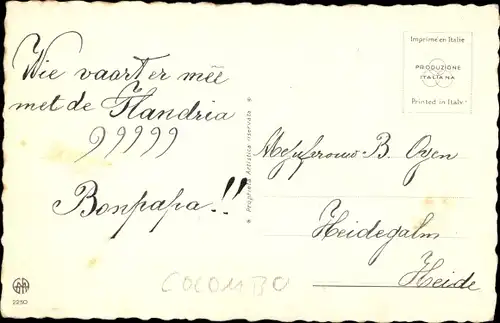 Wie vaart er mee
met de Flandria
?????
Bonpapa!!
Imprimé en Italie
PRODUZIONE
ITALIANA
Printed in Italy
* Proprietà Artistica riservata *
Mejufrouw B. Ogen
Heidegalm
Heide
COLOMBO
2230